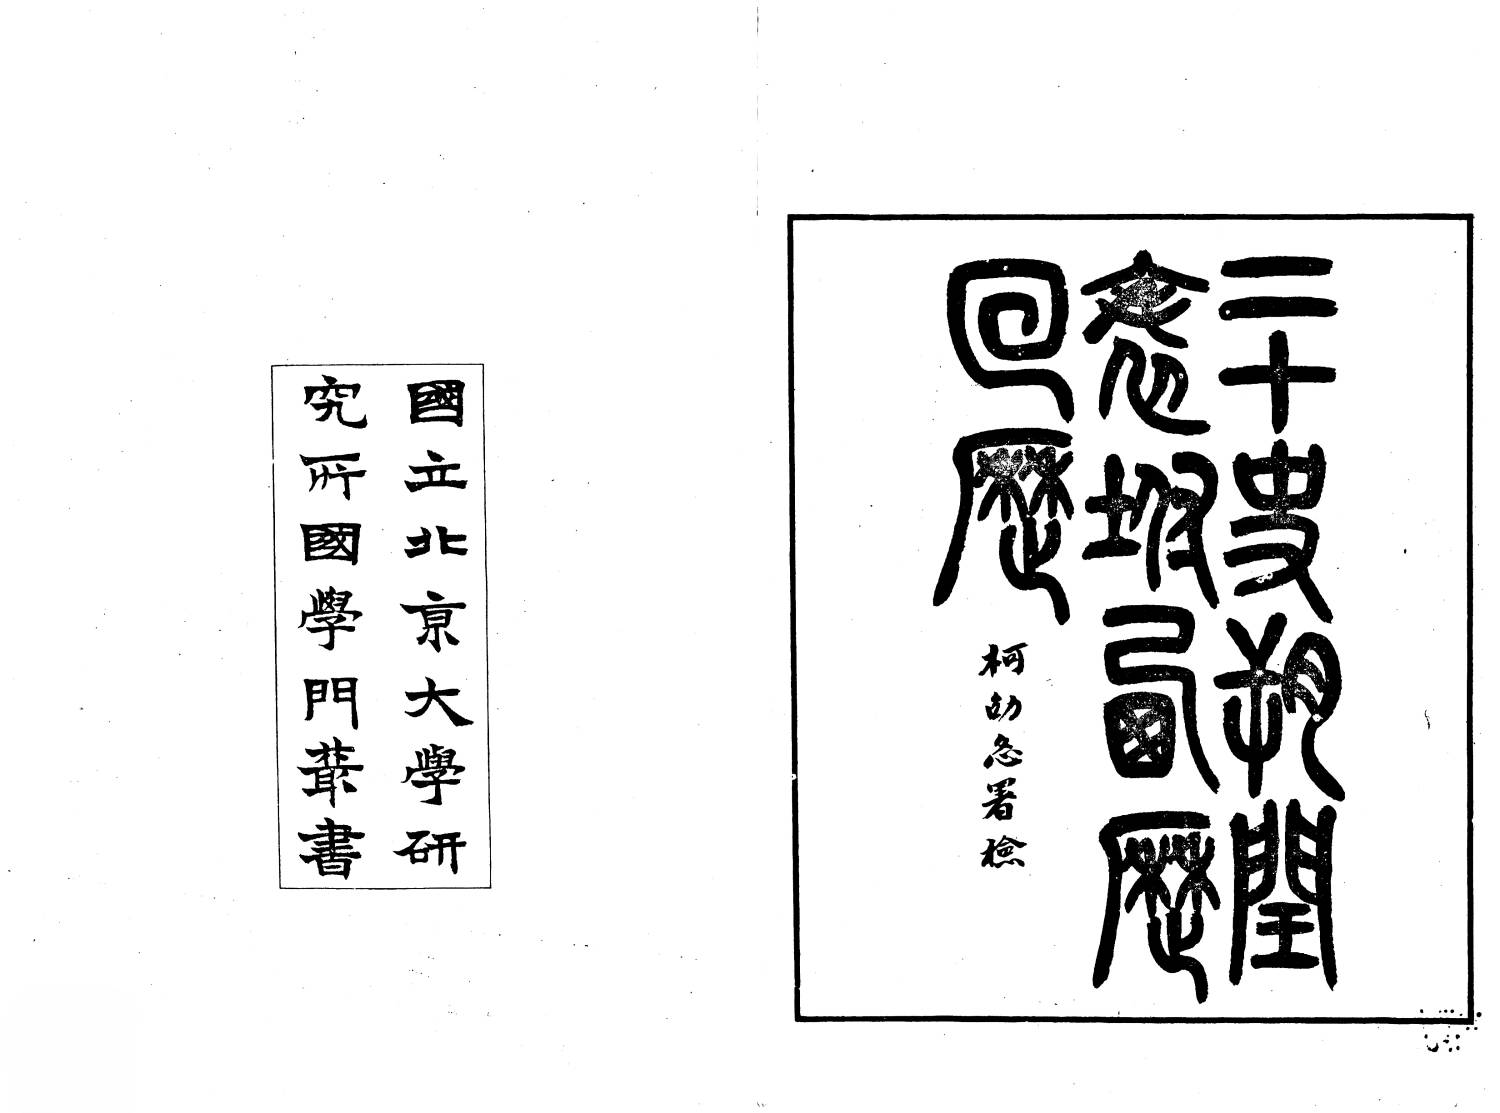 二十史朔閏
表坿西歷
回歷
柯劭忞署檢
國立北京大學研
究所國學門叢書